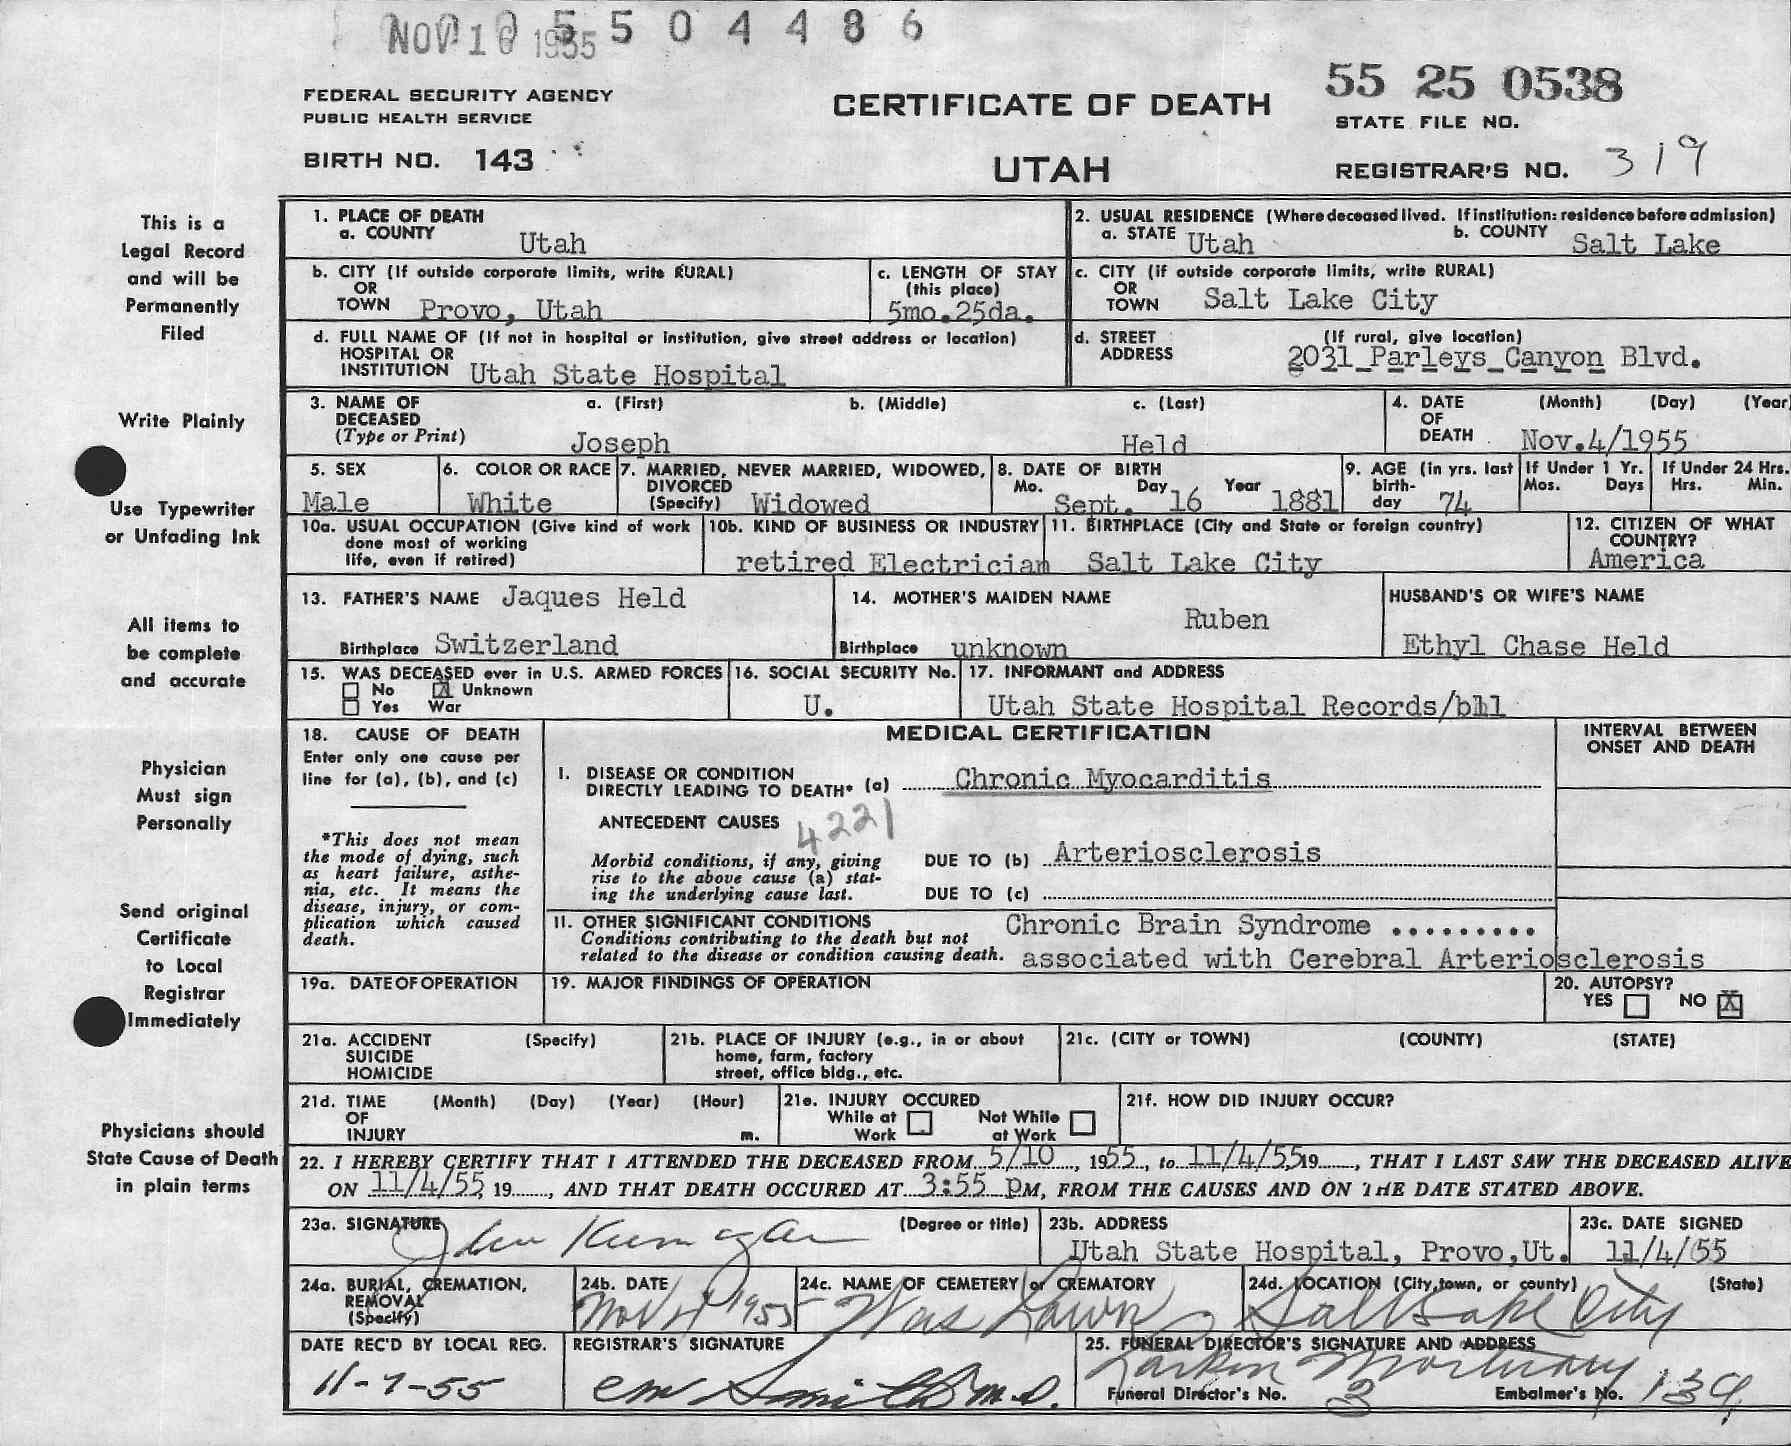 NOV 16 1955 5 5 0 4 4 8 6
55 25 0538
FEDERAL SECURITY AGENCY
PUBLIC HEALTH SERVICE
CERTIFICATE OF DEATH
STATE FILE NO.
BIRTH NO. 143
UTAH
REGISTRAR'S NO. 319
This is a
Legal Record
and will be
Permanently
Filed
Write Plainly
Use Typewriter
or Unfading Ink
All items to
be complete
and accurate
Physician
Must sign
Personally
Send original
Certificate
to Local
Registrar
Immediately
Physicians should
State Cause of Death
in plain terms
1. PLACE OF DEATH
a. COUNTY Utah
2. USUAL RESIDENCE (Where deceased lived. If institution: residence before admission)
a. STATE Utah b. COUNTY Salt Lake
b. CITY (If outside corporate limits, write RURAL)
OR
TOWN Provo, Utah
c. LENGTH OF STAY
(this place)
5mo.25da.
c. CITY (if outside corporate limits, write RURAL)
OR
TOWN Salt Lake City
d. FULL NAME OF (If not in hospital or institution, give street address or location)
HOSPITAL OR
INSTITUTION Utah State Hospital
d. STREET (If rural, give location)
ADDRESS 2031 Parleys Canyon Blvd.
3. NAME OF a. (First) b. (Middle) c. (Last)
DECEASED
(Type or Print) Joseph Held
4. DATE (Month) (Day) (Year)
OF
DEATH Nov.4/1955
5. SEX
Male
6. COLOR OR RACE
White
7. MARRIED, NEVER MARRIED, WIDOWED,
DIVORCED
(Specify) Widowed
8. DATE OF BIRTH
Mo. Day Year
Sept. 16 1881
9. AGE (in yrs. last
birth-
day 74
If Under 1 Yr.
Mos. Days
If Under 24 Hrs.
Hrs. Min.
10a. USUAL OCCUPATION (Give kind of work
done most of working
life, even if retired)
10b. KIND OF BUSINESS OR INDUSTRY
retired Electrician
11. BIRTHPLACE (City and State or foreign country)
Salt Lake City
12. CITIZEN OF WHAT
COUNTRY?
America
13. FATHER'S NAME Jaques Held
Birthplace Switzerland
14. MOTHER'S MAIDEN NAME
Ruben
Birthplace unknown
HUSBAND'S OR WIFE'S NAME
Ethyl Chase Held
15. WAS DECEASED ever in U.S. ARMED FORCES
No X Unknown
Yes War
16. SOCIAL SECURITY No.
U.
17. INFORMANT and ADDRESS
Utah State Hospital Records/bhl
18. CAUSE OF DEATH
Enter only one cause per
line for (a), (b), and (c)
*This does not mean
the mode of dying, such
as heart failure, asthe-
nia, etc. It means the
disease, injury, or com-
plication which caused
death.
MEDICAL CERTIFICATION
INTERVAL BETWEEN
ONSET AND DEATH
I. DISEASE OR CONDITION
DIRECTLY LEADING TO DEATH* (a) Chronic Myocarditis
ANTECEDENT CAUSES 4221
Morbid conditions, if any, giving
rise to the above cause (a) stat-
ing the underlying cause last.
DUE TO (b) Arteriosclerosis
DUE TO (c)
11. OTHER SIGNIFICANT CONDITIONS
Conditions contributing to the death but not
related to the disease or condition causing death.
Chronic Brain Syndrome .........
associated with Cerebral Arteriosclerosis
19a. DATE OF OPERATION
19. MAJOR FINDINGS OF OPERATION
20. AUTOPSY?
YES NO X
21a. ACCIDENT (Specify)
SUICIDE
HOMICIDE
21b. PLACE OF INJURY (e.g., in or about
home, farm, factory
street, office bldg., etc.
21c. (CITY or TOWN) (COUNTY) (STATE)
21d. TIME (Month) (Day) (Year) (Hour)
OF
INJURY m.
21e. INJURY OCCURED
While at Not While
Work at Work
21f. HOW DID INJURY OCCUR?
22. I HEREBY CERTIFY THAT I ATTENDED THE DECEASED FROM 5/10, 1955, to 11/4/55 19......, THAT I LAST SAW THE DECEASED ALIVE
ON 11/4/55, 19......, AND THAT DEATH OCCURED AT 3:55 PM, FROM THE CAUSES AND ON THE DATE STATED ABOVE.
23a. SIGNATURE (Degree or title)
23b. ADDRESS
Utah State Hospital, Provo,Ut.
23c. DATE SIGNED
11/4/55
24a. BURIAL, CREMATION,
REMOVAL
(Specify)
24b. DATE
1955
24c. NAME OF CEMETERY or CREMATORY
Was Lawn
24d. LOCATION (City, town, or county) (State)
Salt Lake City
DATE REC'D BY LOCAL REG.
11-7-55
REGISTRAR'S SIGNATURE
Smith M.D.
25. FUNERAL DIRECTOR'S SIGNATURE AND ADDRESS
Larkin Mortuary
Funeral Director's No. 3 Embalmer's No. 139